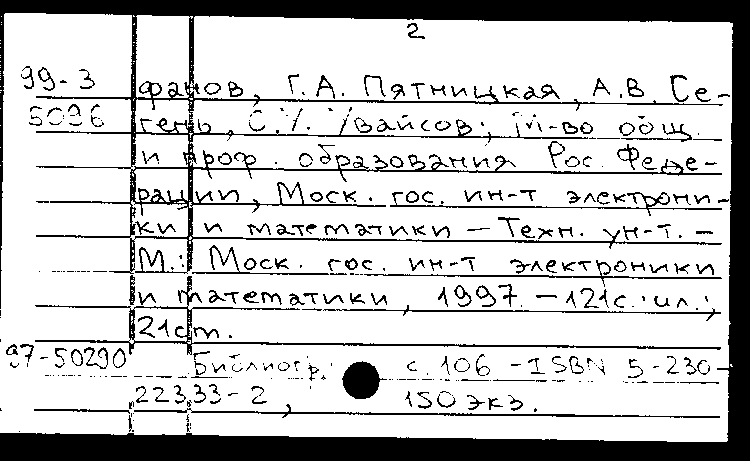 2
99-3 фанов, Г.А. Пятницкая, А.В. Се-
5096 гень, С.У. Увайсов; М-во общ.
и проф. образования Рос. Феде-
рации, Моск. гос. ин-т электрони-
ки и математики — Техн. ун-т. —
М.: Моск. гос. ин-т электроники
и математики, 1997. — 121с.: ил.;
21ст.
97-50290 Библиогр.: с. 106 - ISBN 5-230-
22333-2, 150 экз.